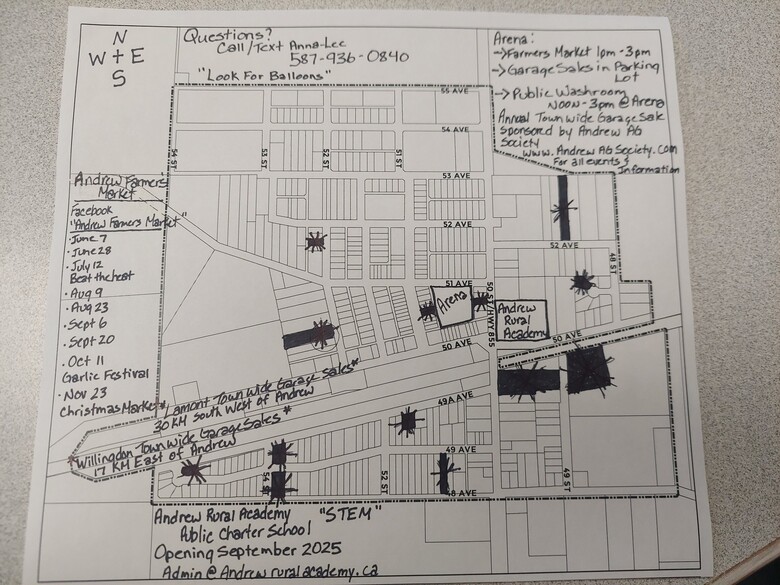 N
W + E
S
Questions?
Call/Text Anna-Lee
587-936-0840
"Look For Balloons"
Arena:
→ Farmers Market 1pm-3pm
→ Garage Sales in Parking
Lot
→ Public Washroom
NOON-3pm @ Arena
Annual Town wide Garage Sale
sponsored by Andrew AG
Society
www.AndrewAGSociety.com
For all events &
Information
55 AVE
54 AVE
54 ST
53 ST
52 ST
51 ST
53 AVE
52 AVE
52 AVE
48 ST
51 AVE
50 ST/HWY 855
Arena
Andrew
Rural
Academy
50 AVE
50 AVE
Andrew Farmers'
Market
Facebook
"Andrew Farmers Market"
• June 7
• June 28
• July 12
Beat the heat
• Aug 9
• Aug 23
• Sept 6
• Sept 20
• Oct 11
Garlic Festival
• Nov 23
Christmas Market
*Lamont Town wide Garage Sales*
30 KM South West of Andrew
*Willingdon Town wide Garage Sales*
17 KM East of Andrew
49A AVE
49 AVE
48 AVE
54 ST
52 ST
49 ST
Andrew Rural Academy "STEM"
Public Charter School
Opening September 2025
Admin@Andrewruralacademy.ca